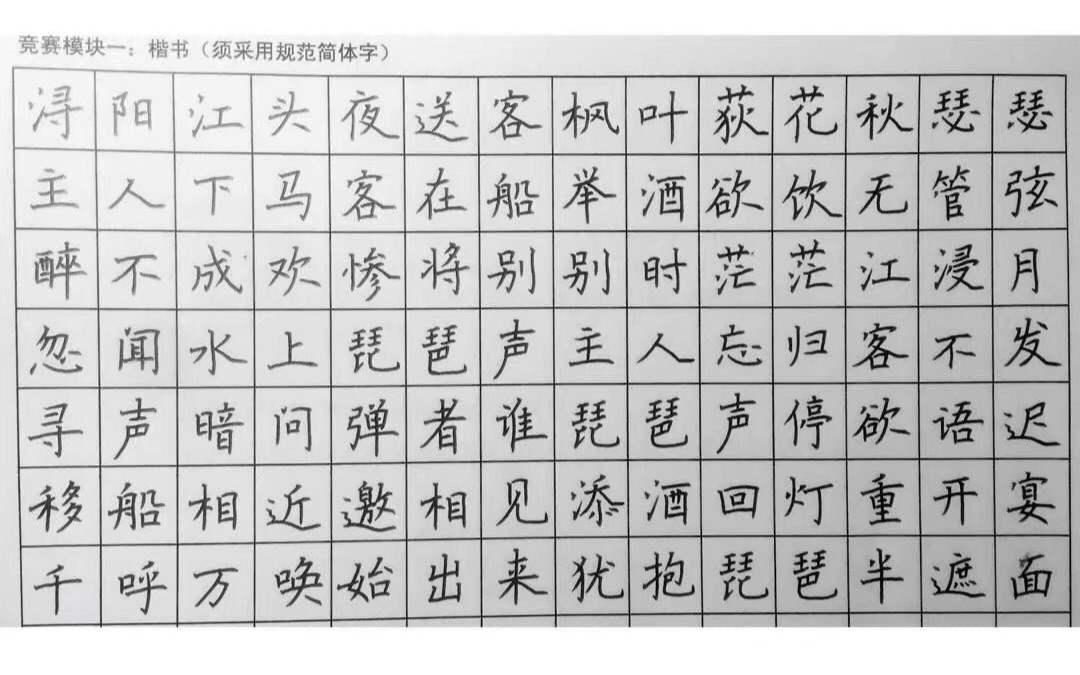 竞赛模块一：楷书（须采用规范简体字）
浔阳江头夜送客枫叶荻花秋瑟瑟
主人下马客在船举酒欲饮无管弦
醉不成欢惨将别别时茫茫江浸月
忽闻水上琵琶声主人忘归客不发
寻声暗问弹者谁琵琶声停欲语迟
移船相近邀相见添酒回灯重开宴
千呼万唤始出来犹抱琵琶半遮面